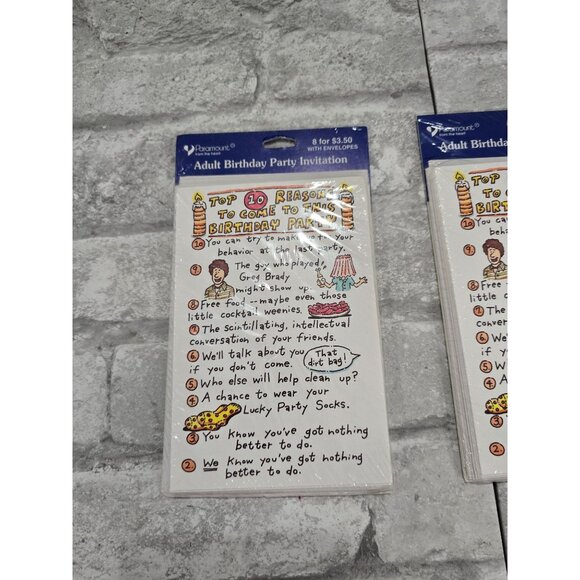 Paramount
from the heart
8 for $3.50
WITH ENVELOPES
Adult Birthday Party Invitation
TOP 10 REASONS
TO COME TO THIS
BIRTHDAY PARTY
10 You can try to make up for your
behavior at the last party.
9. The guy who played
Greg Brady
might show up.
8 Free food -- maybe even those
little cocktail weenies.
7 The scintillating, intellectual
conversation of your friends.
6 We'll talk about you
if you don't come.
That
dirt bag!
5 Who else will help clean up?
4 A chance to wear your
Lucky Party Socks.
3 You know you've got nothing
better to do.
2. We know you've got nothing
better to do.
Paramount
from the heart
Adult Birthda
TOP
TO C
BIRT
10 You ca
beha
9.
8 Free
little c
7 The
conver
6 We'
if y
5 Who
4 A c
3 You
2.